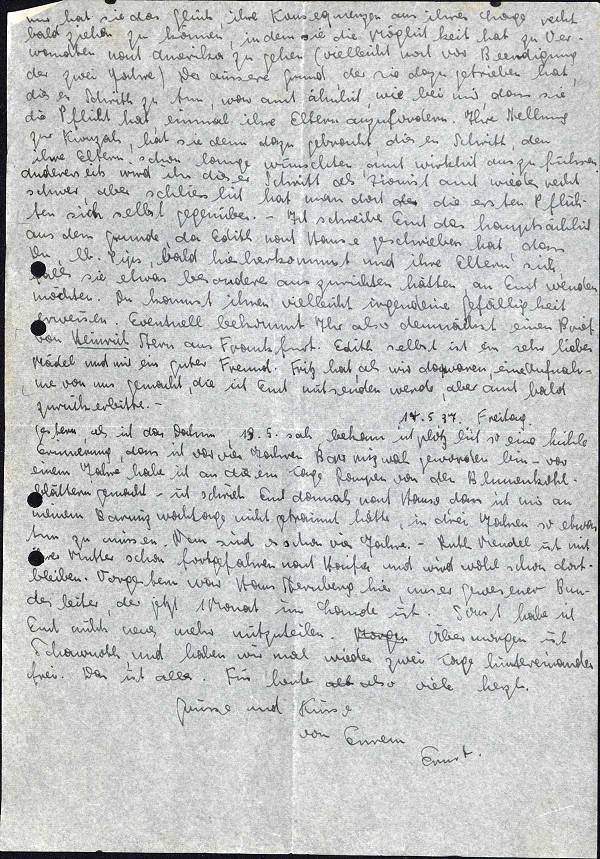 uns hat sie das Glück, ihre Konsequenzen aus ihrer Lage recht
bald ziehen zu können, indem sie die Möglichkeit hat zu Ver-
wandten nach Amerika zu gehen (vielleicht noch vor Beendigung
der zwei Jahre) Der äussere Grund der sie dazu getrieben hat,
diesen Schritt zu tun, war auch ähnlich, wie bei mir dass sie
die Pflicht hat einmal ihre Eltern anzufordern. Ihre Stellung
zur Kwuzah, hat sie denn dazu gebracht diesen Schritt, den
ihre Eltern schon lange wünschten auch wirklich auszuführen
andererseits wird ihr dieser Schritt als Zionist auch wieder recht
schwer aber schliesslich hat man dort die ersten Pflich-
ten sich selbst gegenüber. - Ich schreibe Euch das hauptsächlich
aus dem Grunde, da Edith nach Hause geschrieben hat, dass
Du, lb. Papa, bald hierherkommst und ihre Eltern sich,
falls sie etwas besonderes auszurichten hätten an Euch wenden
möchten. Du kannst ihnen vielleicht irgendeine Gefälligkeit
erweisen. Eventuell bekommt Ihr also demnächst einen Brief
von Heinrich Stern aus Frankfurt. Edith selbst ist ein sehr liebes
Mädel und mir ein guter Freund. Fritz hat, als wir da waren, eine Aufnah-
me von uns gemacht, die ich Euch mitsenden werde, aber auch bald
zurückerbitte. -
14.5.37. Freitag.
Gestern als ich das Datum, 13.5. sah, bekam ich plötzlich so eine kühle
Erinnerung, dass ich vor vier Jahren Barmizwah geworden bin - vor
einem Jahre habe ich an diesem Tage Raupen von den Blumenkohl-
blättern gemacht - ich schrieb Euch damals nach Hause dass ich mir an
meinem Barmizwahtage nicht geträumt hätte, in drei Jahren so etwas
tun zu müssen. Nun sind es schon vier Jahre. - Ruth Mendel ist mit
ihrer Mutter schon fortgefahren nach Haifa und wird wohl schon dort-
bleiben. Vorgestern war Hans Sternberg hier, unser gewesener Bun-
desleiter, der jetzt 1 Monat im Lande ist. Sonst habe ich
Euch nichts neues mehr mitzuteilen. Morgen Übermorgen ist
Schawuoth und haben wir mal wieder zwei Tage hintereinander
frei. Das ist alles. Für heute also viele herzl.
Grüsse und Küsse
von Eurem
Ernst.